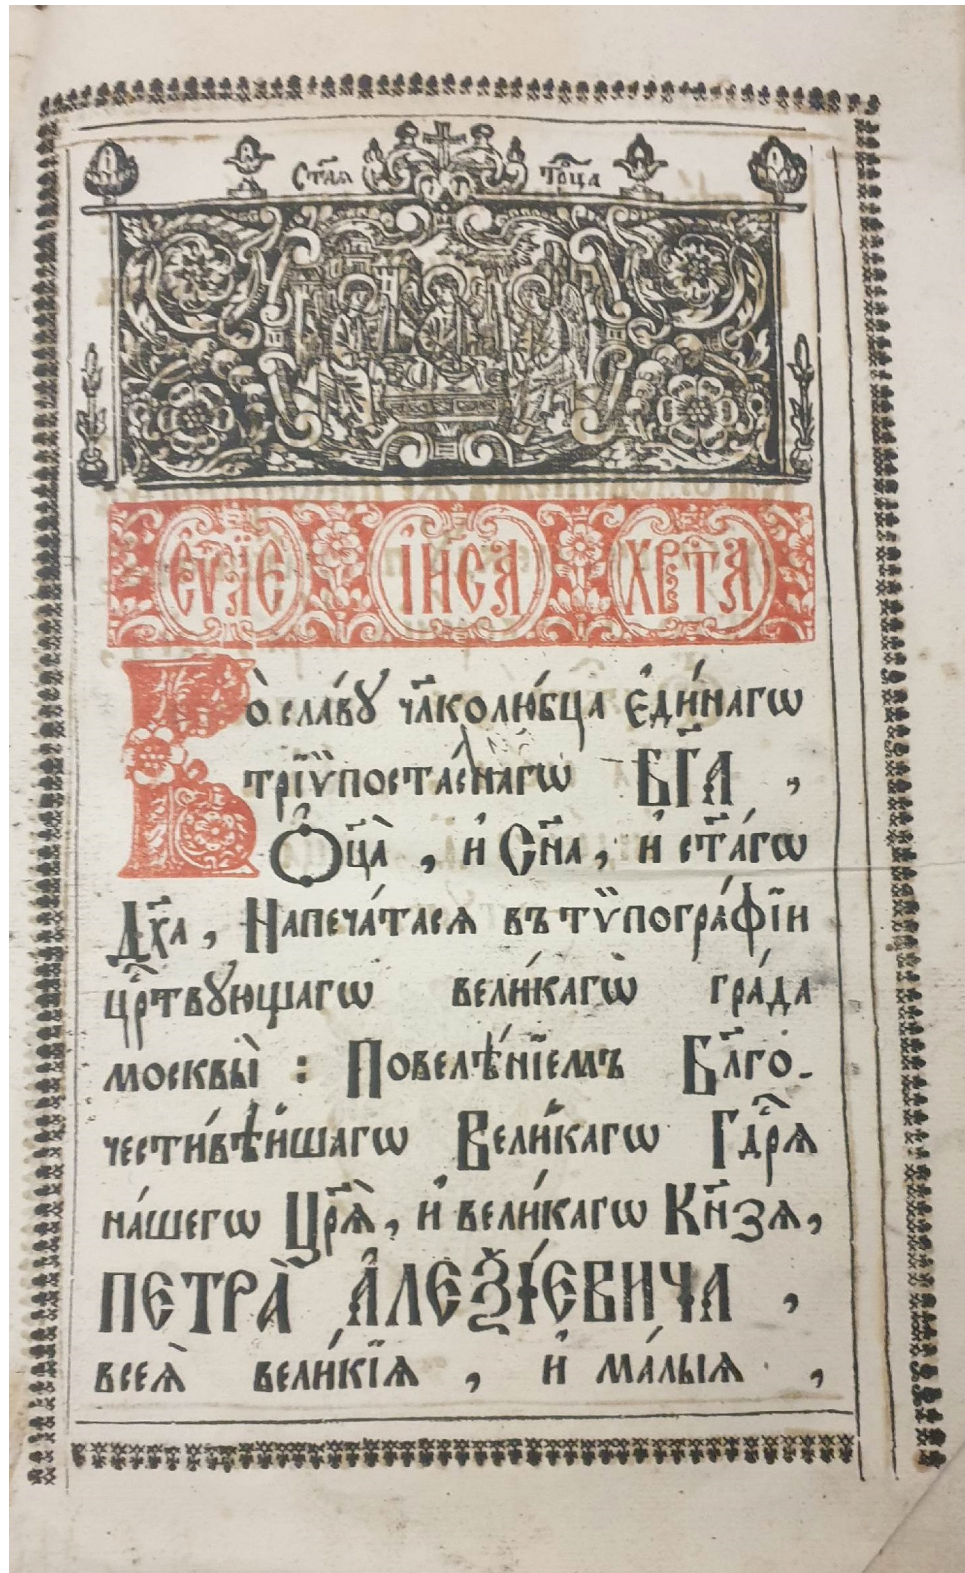 Ст҃ая Тро́ца
Є҆ѵⷢ҇лїе І҆и҃са Хрⷭ҇та̀
Во̀ сла́вꙋ чл҃колю́бца є҆ди́нагѡ
трїѵпоста́снагѡ БГ҃А ,
Ѻ҆ц҃а̀ , и҆ Сн҃а , и҆ ст҃а́гѡ
Дх҃а , Напеча́тасѧ въ тѷпогра́фїи
црⷭ҇твꙋющагѡ вели́кагѡ гра́да
москвы̀ : Повелѣ́нїемъ Бл҃го-
чести́вѣйшагѡ Вели́кагѡ Гдⷭ҇рѧ
на́шегѡ Цр҃ѧ̀ , и҆ вели́кагѡ Кн҃зѧ ,
ПЕТРА̀ А҆ЛЕѮІ́ЕВИЧА ,
всеѧ̀ вели́кїѧ , и҆ ма́лыѧ ,